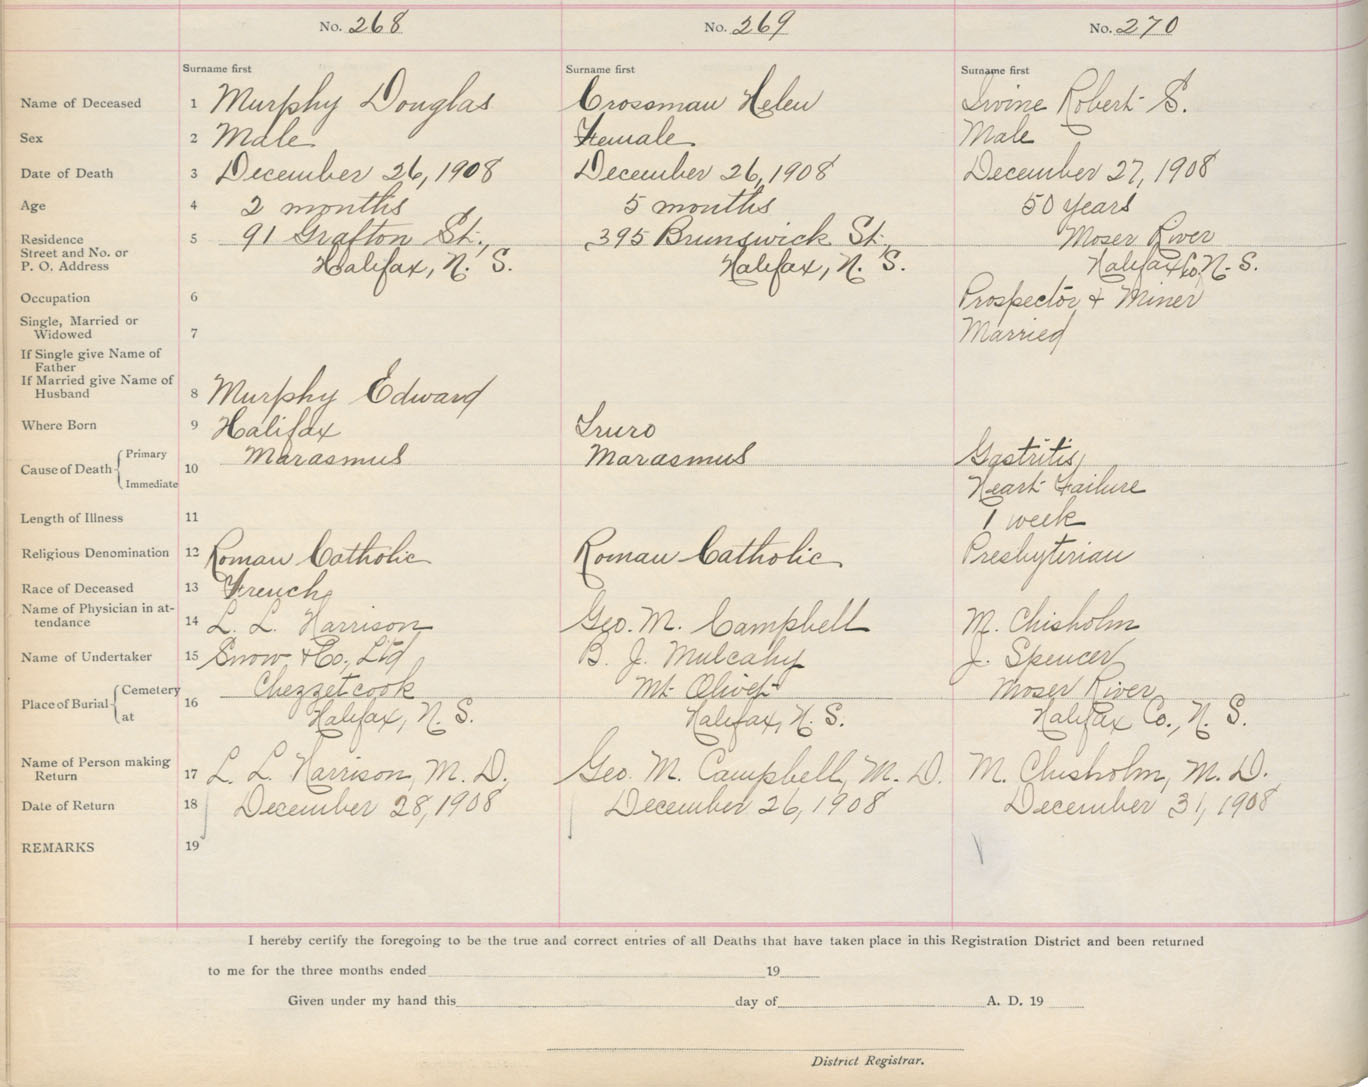 No. 268 No. 269 No. 270
Surname first Surname first Surname first
Name of Deceased 1 Murphy Douglas Crossman Helen Irvine Robert S.
Sex 2 Male Female Male
Date of Death 3 December 26, 1908 December 26, 1908 December 27, 1908
Age 4 2 months 5 months 50 years
Residence 5 91 Grafton St., 395 Brunswick St., Moser River
Street and No. or
P. O. Address Halifax, N. S. Halifax, N. S. Halifax Co. N. S.
Occupation 6 Prospector + Miner
Single, Married or
Widowed 7 Married
If Single give Name of
Father
If Married give Name of
Husband 8 Murphy Edward
Where Born 9 Halifax Truro
Cause of Death Primary 10 Marasmus Marasmus Gastritis
Immediate Heart Failure
Length of Illness 11 1 week
Religious Denomination 12 Roman Catholic Roman Catholic Presbyterian
Race of Deceased 13 French
Name of Physician in at-
tendance 14 L. L. Harrison Geo. M. Campbell M. Chisholm
Name of Undertaker 15 Snow & Co. Ltd B. J. Mulcahy J. Spencer
Place of Burial Cemetery 16 Chezzetcook Mt Olivet Moser River
at Halifax, N. S. Halifax, N. S. Halifax Co., N. S.
Name of Person making
Return 17 L. L. Harrison, M. D. Geo. M. Campbell, M. D. M. Chisholm, M. D.
Date of Return 18 December 28, 1908 December 26, 1908 December 31, 1908
REMARKS 19
I hereby certify the foregoing to be the true and correct entries of all Deaths that have taken place in this Registration District and been returned
to me for the three months ended 19
Given under my hand this day of A. D. 19
District Registrar.